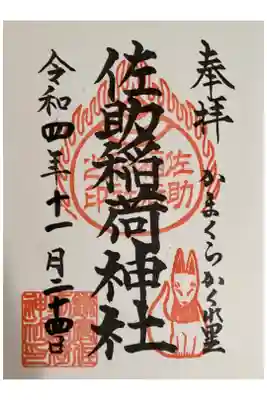 奉拝
かまくらかくれ里
佐助稲荷神社
佐助
之印
令和四年十一月二十四日